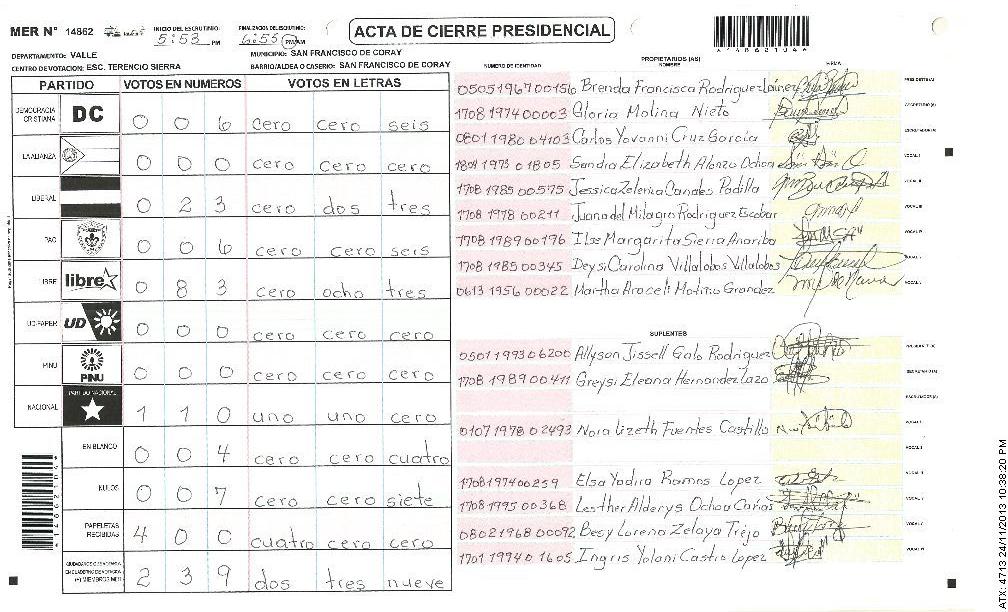 MER N° 14862
INICIO DEL ESCRUTINIO: 5:53 PM
FINALIZACION DEL ESCRUTINIO: 6:55 PM AM
ACTA DE CIERRE PRESIDENCIAL
DEPARTAMENTO: VALLE
MUNICIPIO: SAN FRANCISCO DE CORAY
CENTRO DE VOTACION: ESC. TERENCIO SIERRA
BARRIO/ALDEA O CASERIO: SAN FRANCISCO DE CORAY
PARTIDO VOTOS EN NUMEROS VOTOS EN LETRAS
DEMOCRACIA CRISTIANA DC 0 0 6 cero cero seis
LA ALIANZA 0 0 0 cero cero cero
LIBERAL 0 2 3 cero dos tres
PAC 0 0 6 cero cero seis
LIBRE libre 0 8 3 cero ocho tres
UD-FAPER UD 0 0 0 cero cero cero
PINU PINU 0 0 0 cero cero cero
NACIONAL PARTIDO NACIONAL 1 1 0 uno uno cero
EN BLANCO 0 0 4 cero cero cuatro
NULOS 0 0 7 cero cero siete
PAPELETAS RECIBIDAS 4 0 0 cuatro cero cero
2 3 9 dos tres nueve
PROPIETARIOS (AS)
NUMERO DE IDENTIDAD NOMBRE FIRMA
0505196700156 Brenda Francisca Rodriguez Lainez
1708197400003 Gloria Molina Nieto
0801198004103 Carlos Yovanni Cruz Garcia
1804197301805 Sandra Elizabeth Alonzo Ochoa
1708198500575 Jessica Zelenia Canales Padilla
1708197800211 Juana del Milagro Rodriguez Escobar
1708198900196 Ilse Margarita Sierra Anariba
1708198500345 Deysi Carolina Villalobos Villalobos
0613195600022 Martha Araceli Molina Grandez
SUPLENTES
0501199306200 Allyson Jissell Galo Rodriguez
1708198900411 Greysi Eleana Hernandez Lazo
0107197802493 Nora Lizeth Fuentes Castillo
1708197400259 Elsa Yadira Ramos Lopez
1708199500368 Lesther Alderys Ochoa Carias
0802196800092 Besy Lorena Zelaya Trejo
1701197401605 Ingris Yolani Castro Lopez
ATX: 4713 24/11/2013 10:38:20 PM